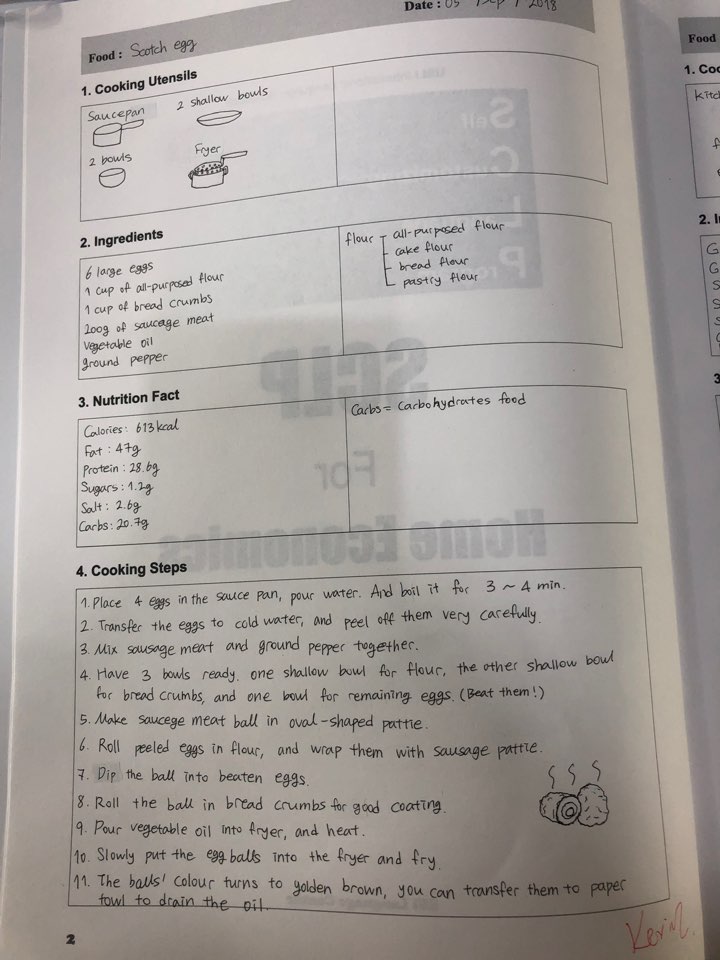 Date : 05 / Sep / 2018
Food : Scotch egg
1. Cooking Utensils
Saucepan
2 shallow bowls
2 bowls
Fryer
2. Ingredients
6 large eggs
1 cup of all-purposed flour
1 cup of bread crumbs
200g of saucage meat
Vegetable oil
ground pepper
flour
all-purposed flour
cake flour
bread flour
pastry flour
3. Nutrition Fact
Calories: 613kcal
Fat : 47g
Protein : 28.6g
Sugars : 1.2g
Salt : 2.6g
Carbs: 20.7g
Carbs = Carbohydrates food
4. Cooking Steps
1. Place 4 eggs in the sauce pan, pour water. And boil it for 3 ~ 4 min.
2. Transfer the eggs to cold water, and peel off them very carefully.
3. Mix sausage meat and ground pepper together.
4. Have 3 bowls ready. one shallow bowl for flour, the other shallow bowl
for bread crumbs, and one bowl for remaining eggs. (Beat them!)
5. Make saucege meat ball in oval-shaped pattie.
6. Roll peeled eggs in flour, and wrap them with sausage pattie.
7. Dip the ball into beaten eggs.
8. Roll the ball in bread crumbs for good coating.
9. Pour vegetable oil into fryer, and heat.
10. Slowly put the egg balls into the fryer and fry.
11. The balls' colour turns to golden brown, you can transfer them to paper
towl to drain the oil.
2
Food
1. Coo
2. I
3
SCLP
For
Home Economics